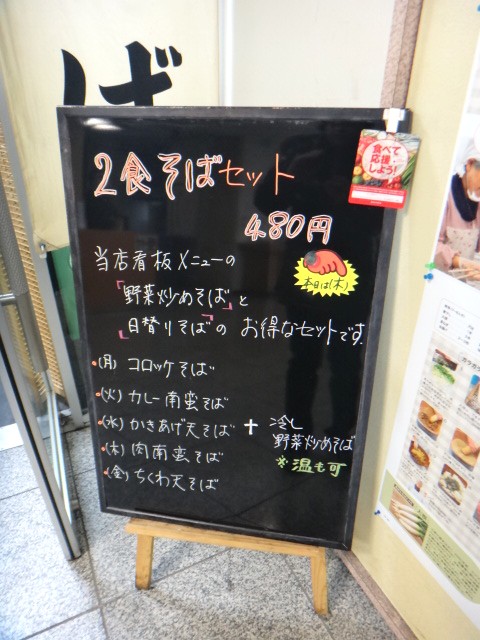 ば
2食そばセット
480円
食べて
応援
しよう!
当店看板メニューの
本日は(木)
「野菜炒めそば」と
「日替りそば」の お得なセットです。
(月) コロッケそば
(火) カレー南蛮そば
(水) かきあげ天そば
(木) 肉南蛮そば
(金) ちくわ天そば
+
冷し
野菜炒めそば
※温も可